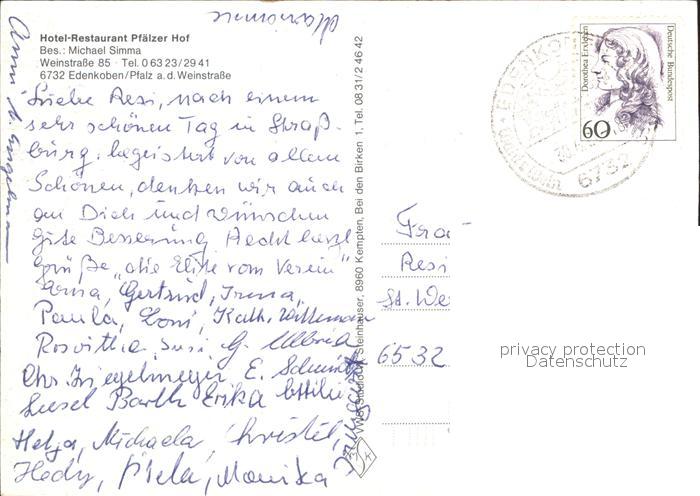 Hotel-Restaurant Pfälzer Hof
Bes.: Michael Simma
Weinstraße 85 · Tel. 0 63 23 / 29 41
6732 Edenkoben/Pfalz a.d. Weinstraße
Liebe Resi, nach einem
sehr schönen Tag in Straß-
burg, begeistert von allem
Schönen, denken wir auch
an Dich und wünschen
gute Besserung Recht herzl.
Grüße „die Elite vom Verein"
Anna, Gertrud, Irma,
Paula, Loni, Kath. Wittmann
Roswitha Susi G. Ullrich
Chr. Ziegelmeyer E. Schmitt
Liesel Barth Erika Ottilie
Helga, Michaela, Christel,
Hedy, Mela, Monika
VWB Studio O. Steinhauser, 8960 Kempten, Bei den Birken 1, Tel. 08 31/2 46 42
Deutsche Bundespost
Dorothea Erxleben
60
EDENKOBEN
6732
Fra
Resi
St. We
6532
privacy protection
Datenschutz